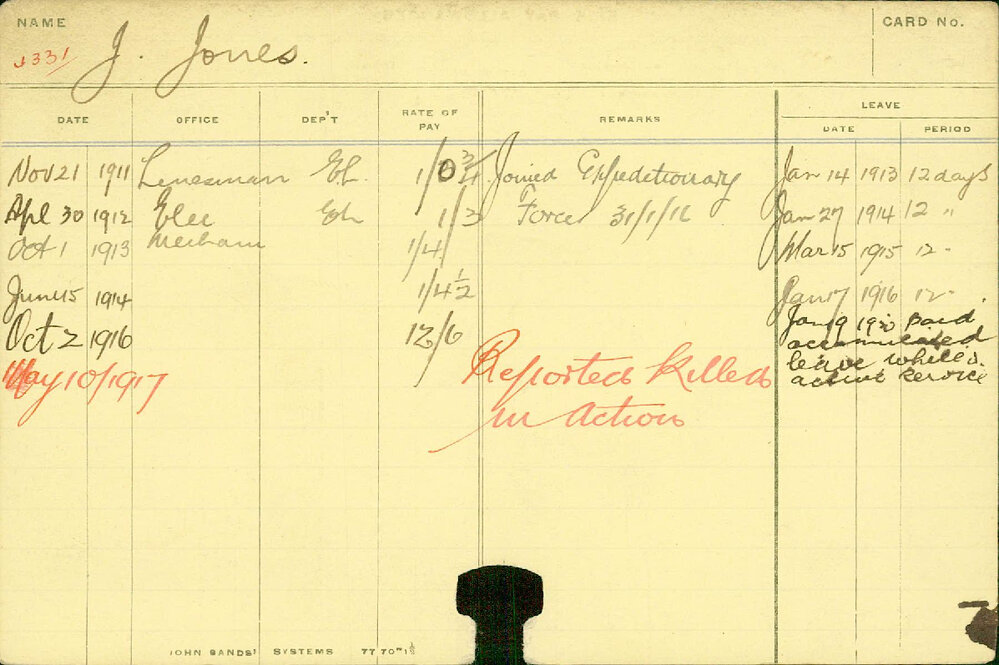 NAME
CARD No.
1331
J. Jones.
DATE OFFICE DEP'T RATE OF PAY REMARKS LEAVE
DATE PERIOD
Nov 21 1911 Linesman EL. 1/0 3/4 Joined Expeditionary Jan 14 1913 12 days
Apl 30 1912 Elec EL 1/3 Force 31/1/16 Jan 27 1914 12 "
Oct 1 1913 Mecham 1/4 Mar 15 1915 12 "
June 15 1914 1/4 1/2 Jan 17 1916 12 "
Oct 2 1916 12/6 Jan 9 1920 Paid
accumulated
leave while
active service
May 10/1917 Reported Killed
in Action
JOHN SANDS' SYSTEMS